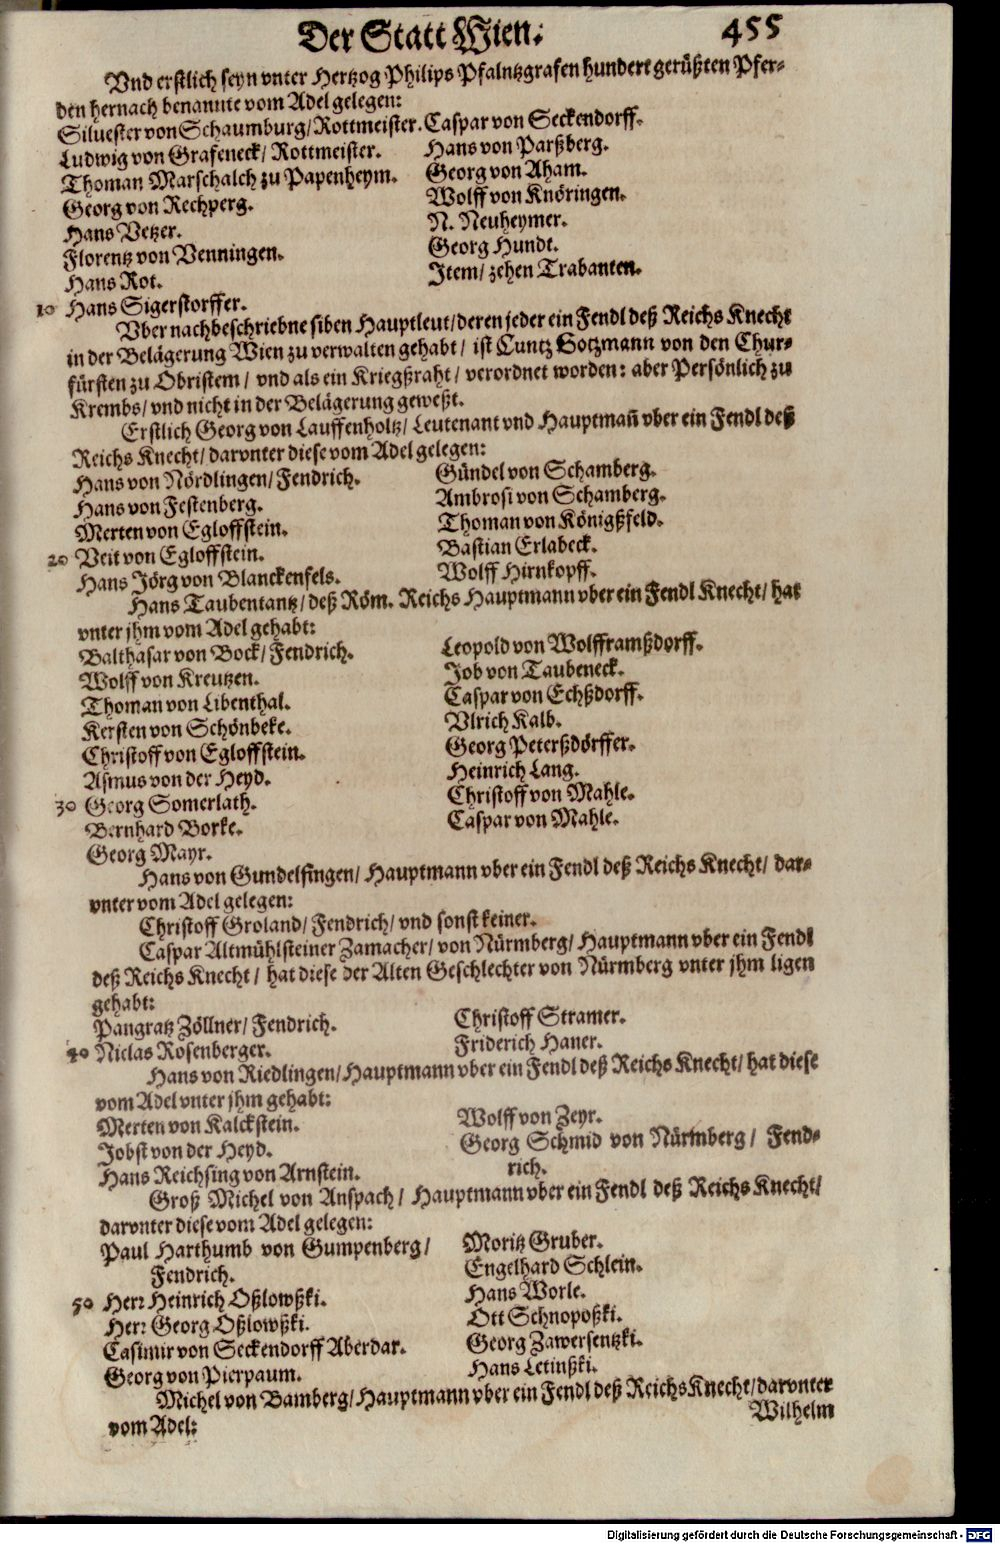 Der Statt Wien. 455
Vnd erstlich seyn vnter Hertzog Philips Pfalntzgrafen hundert gerüßten Pfer-
den hernach benannte vom Adel gelegen:
Siluester von Schaumburg/ Rottmeister.
Ludwig von Grafeneck/ Rottmeister.
Thoman Marschalch zu Papenheym.
Georg von Rechperg.
Hans Vetzer.
Florentz von Venningen.
Hans Rot.
10 Hans Sigerstorffer.
Caspar von Seckendorff.
Hans von Parßberg.
Georg von Aham.
Wolff von Knöringen.
N. Neuheymer.
Georg Hundt.
Item/ zehen Trabanten.
Vber nachbeschriebne siben Hauptleut/ deren jeder ein Fendl deß Reichs Knecht
in der Belägerung Wien zu verwalten gehabt/ ist Cuntz Gotzmann von den Chur-
fürsten zu Obristem/ vnd als ein Kriegßraht/ verordnet worden: aber Persönlich zu
Krembs/ vnd nicht in der Belägerung geweßt.
Erstlich Georg von Lauffenholtz/ Leutenant vnd Hauptmañ vber ein Fendl deß
Reichs Knecht/ darvnter diese vom Adel gelegen:
Hans von Nördlingen/ Fendrich.
Hans von Festenberg.
Merten von Egloffstein.
20 Veit von Egloffstein.
Hans Jörg von Blanckenfels.
Gündel von Schamberg.
Ambrosi von Schamberg.
Thoman von Königßfeld.
Bastian Erlabeck.
Wolff Hirnkopff.
Hans Taubentantz/ deß Röm. Reichs Hauptmann vber ein Fendl Knecht/ hat
vnter jhm vom Adel gehabt:
Balthasar von Bock/ Fendrich.
Wolff von Kreutzen.
Thoman von Libenthal.
Kersten von Schönbeke.
Christoff von Egloffstein.
Asmus von der Heyd.
30 Georg Somerlath.
Bernhard Borke.
Georg Mayr.
Leopold von Wolfframßdorff.
Job von Taubeneck.
Caspar von Echßdorff.
Vlrich Kalb.
Georg Peterßdörffer.
Heinrich Lang.
Christoff von Mahle.
Caspar von Mahle.
Hans von Gundelfingen/ Hauptmann vber ein Fendl deß Reichs Knecht/ dar-
vnter vom Adel gelegen:
Christoff Groland/ Fendrich/ vnd sonst keiner.
Caspar Altmühlsteiner Zamacher/ von Nürmberg/ Hauptmann vber ein Fendl
deß Reichs Knecht/ hat diese der Alten Geschlechter von Nürmberg vnter jhm ligen
gehabt:
Pangratz Zöllner/ Fendrich.
40 Niclas Rosenberger.
Christoff Stramer.
Friderich Haner.
Hans von Riedlingen/ Hauptmann vber ein Fendl deß Reichs Knecht/ hat diese
vom Adel vnter jhm gehabt:
Merten von Kalckstein.
Jobst von der Heyd.
Hans Reichsing von Arnstein.
Wolff von Zeyr.
Georg Schmid von Nürmberg/ Fend-
rich.
Groß Michel von Anspach/ Hauptmann vber ein Fendl deß Reichs Knecht/
darvnter diese vom Adel gelegen:
Paul Harthumb von Gumpenberg/
Fendrich.
50 Herr Heinrich Oßlowßki.
Herr Georg Oßlowßki.
Casimir von Seckendorff Aberdar.
Georg von Pierpaum.
Moritz Gruber.
Engelhard Schlein.
Hans Worle.
Ott Schnopoßki.
Georg Zawersentzki.
Hans Letinßki.
Michel von Bamberg/ Hauptmann vber ein Fendl deß Reichs Knecht/ darvnter
vom Adel:
Wilhelm
Digitalisierung gefördert durch die Deutsche Forschungsgemeinschaft - DFG